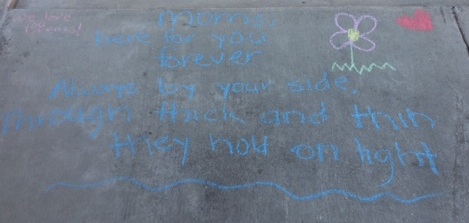 we love
Moms!
Moms,
here for you
forever
Always by your side,
through thick and thin
they hold on tight